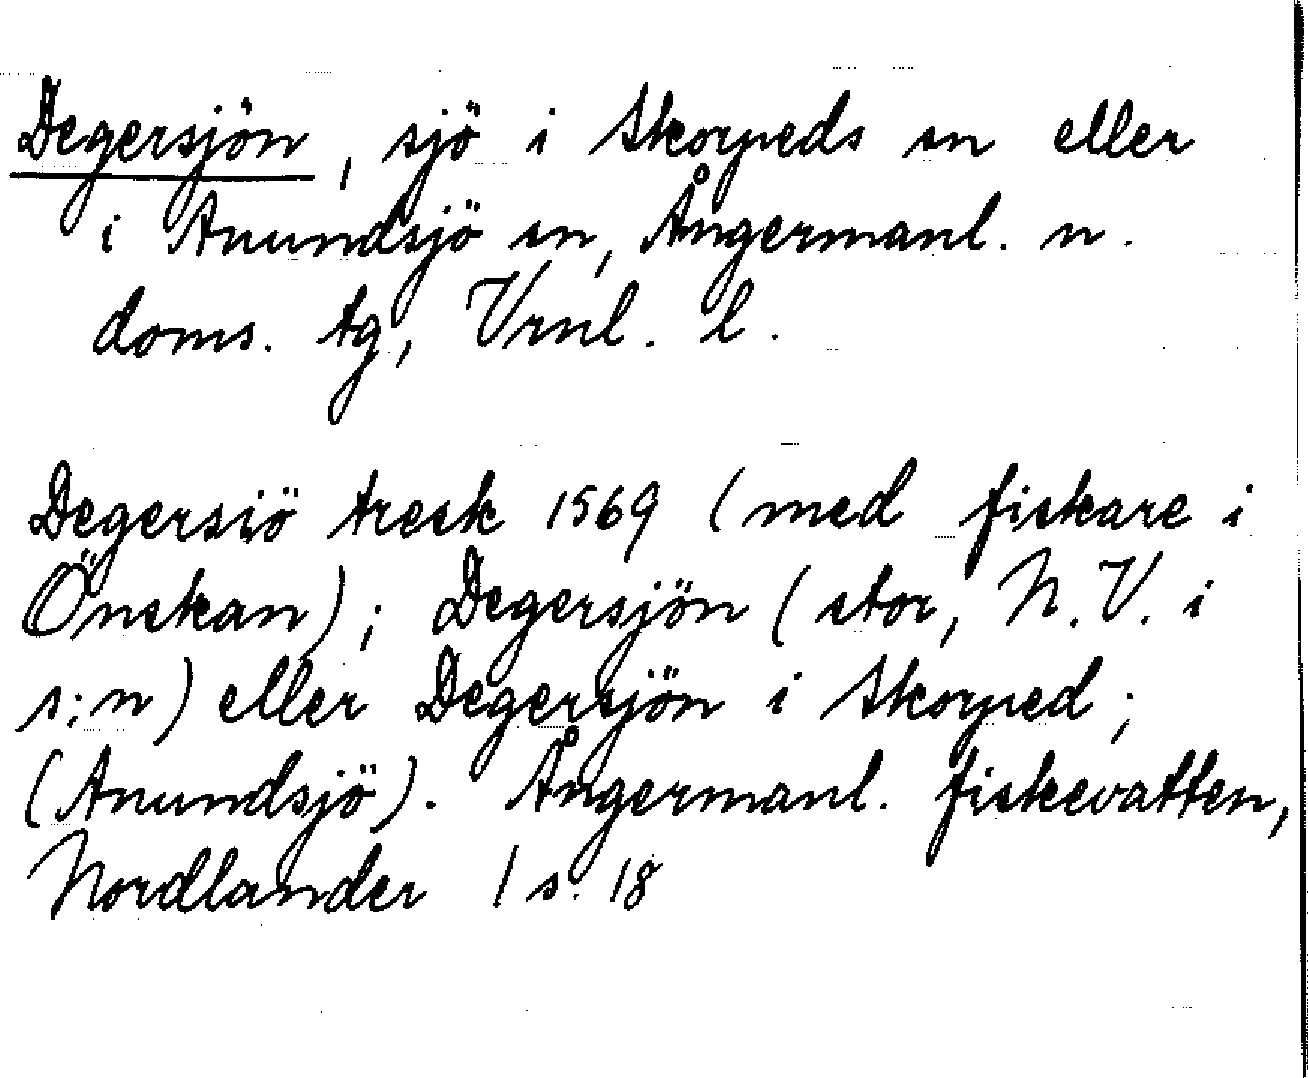 Degersjön, sjö i Skorpeds sn eller
i Anundsjö sn, Ångermanl. n.
doms. tg, Vrnl. l.
Degersiö tresk 1569 (med fiskare i
Önskan); Degersjön (stor, N.V. i
s:n) eller Degersjön i Skorped;
(Anundsjö). Ångermanl. fiskevatten,
Nordlander 1 s. 18